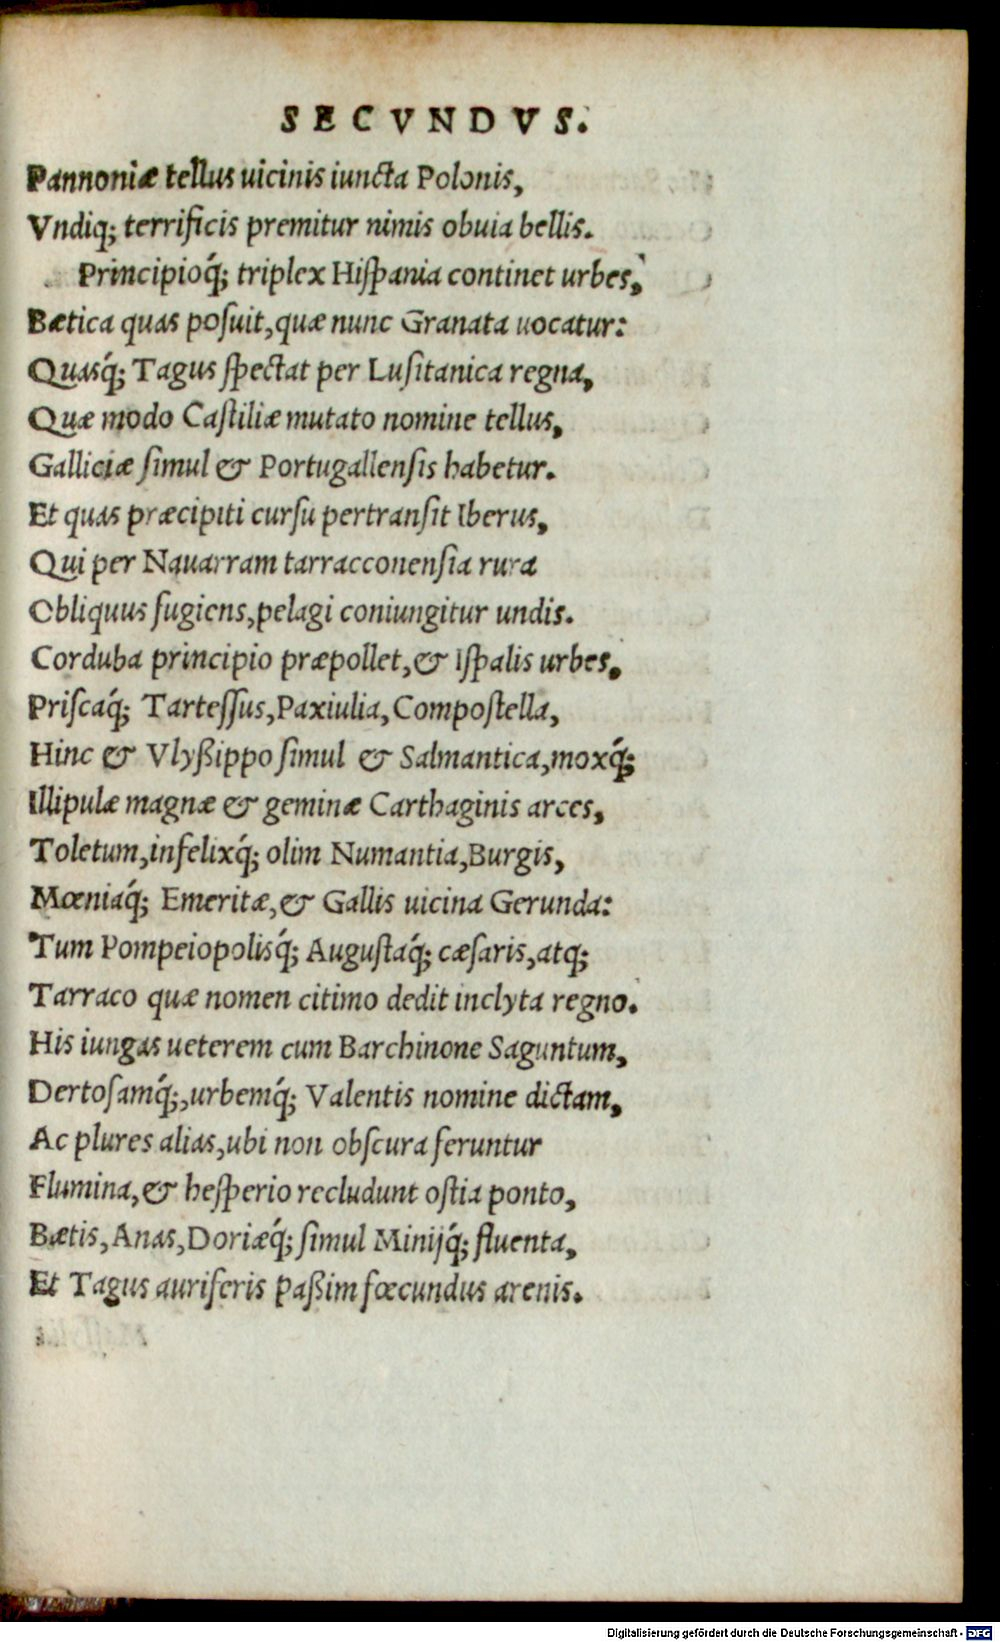 SECVNDVS.
Pannoniæ tellus uicinis iuncta Polonis,
Vndiq; terrificis premitur nimis obuia bellis.
Principioq́; triplex Hiſpania continet urbes,
Bætica quas poſuit, quæ nunc Granata uocatur:
Quasq́; Tagus ſpectat per Luſitanica regna,
Quæ modo Caſtiliæ mutato nomine tellus,
Galliciæ ſimul & Portugallenſis habetur.
Et quas præcipiti curſu pertranſit Iberus,
Qui per Nauarram tarracconenſia rura
Obliquus fugiens, pelagi coniungitur undis.
Corduba principio præpollet, & Iſpalis urbes,
Priſcaq́; Tarteſſus, Paxiulia, Compoſtella,
Hinc & Vlyßippo ſimul & Salmantica, moxq́;
Illipulæ magnæ & geminæ Carthaginis arces,
Toletum, infelixq́; olim Numantia, Burgis,
Mœniaq́; Emeritæ, & Gallis uicina Gerunda:
Tum Pompeiopolisq́; Auguſtaq́; cæſaris, atq;
Tarraco quæ nomen citimo dedit inclyta regno.
His iungas ueterem cum Barchinone Saguntum,
Dertoſamq́;, urbemq́; Valentis nomine dictam,
Ac plures alias, ubi non obſcura feruntur
Flumina, & heſperio recludunt oſtia ponto,
Bætis, Anas, Doriæq́; ſimul Minijq́; fluenta,
Et Tagus auriferis paßim fœcundus arenis.
Digitalisierung gefördert durch die Deutsche Forschungsgemeinschaft - DFG